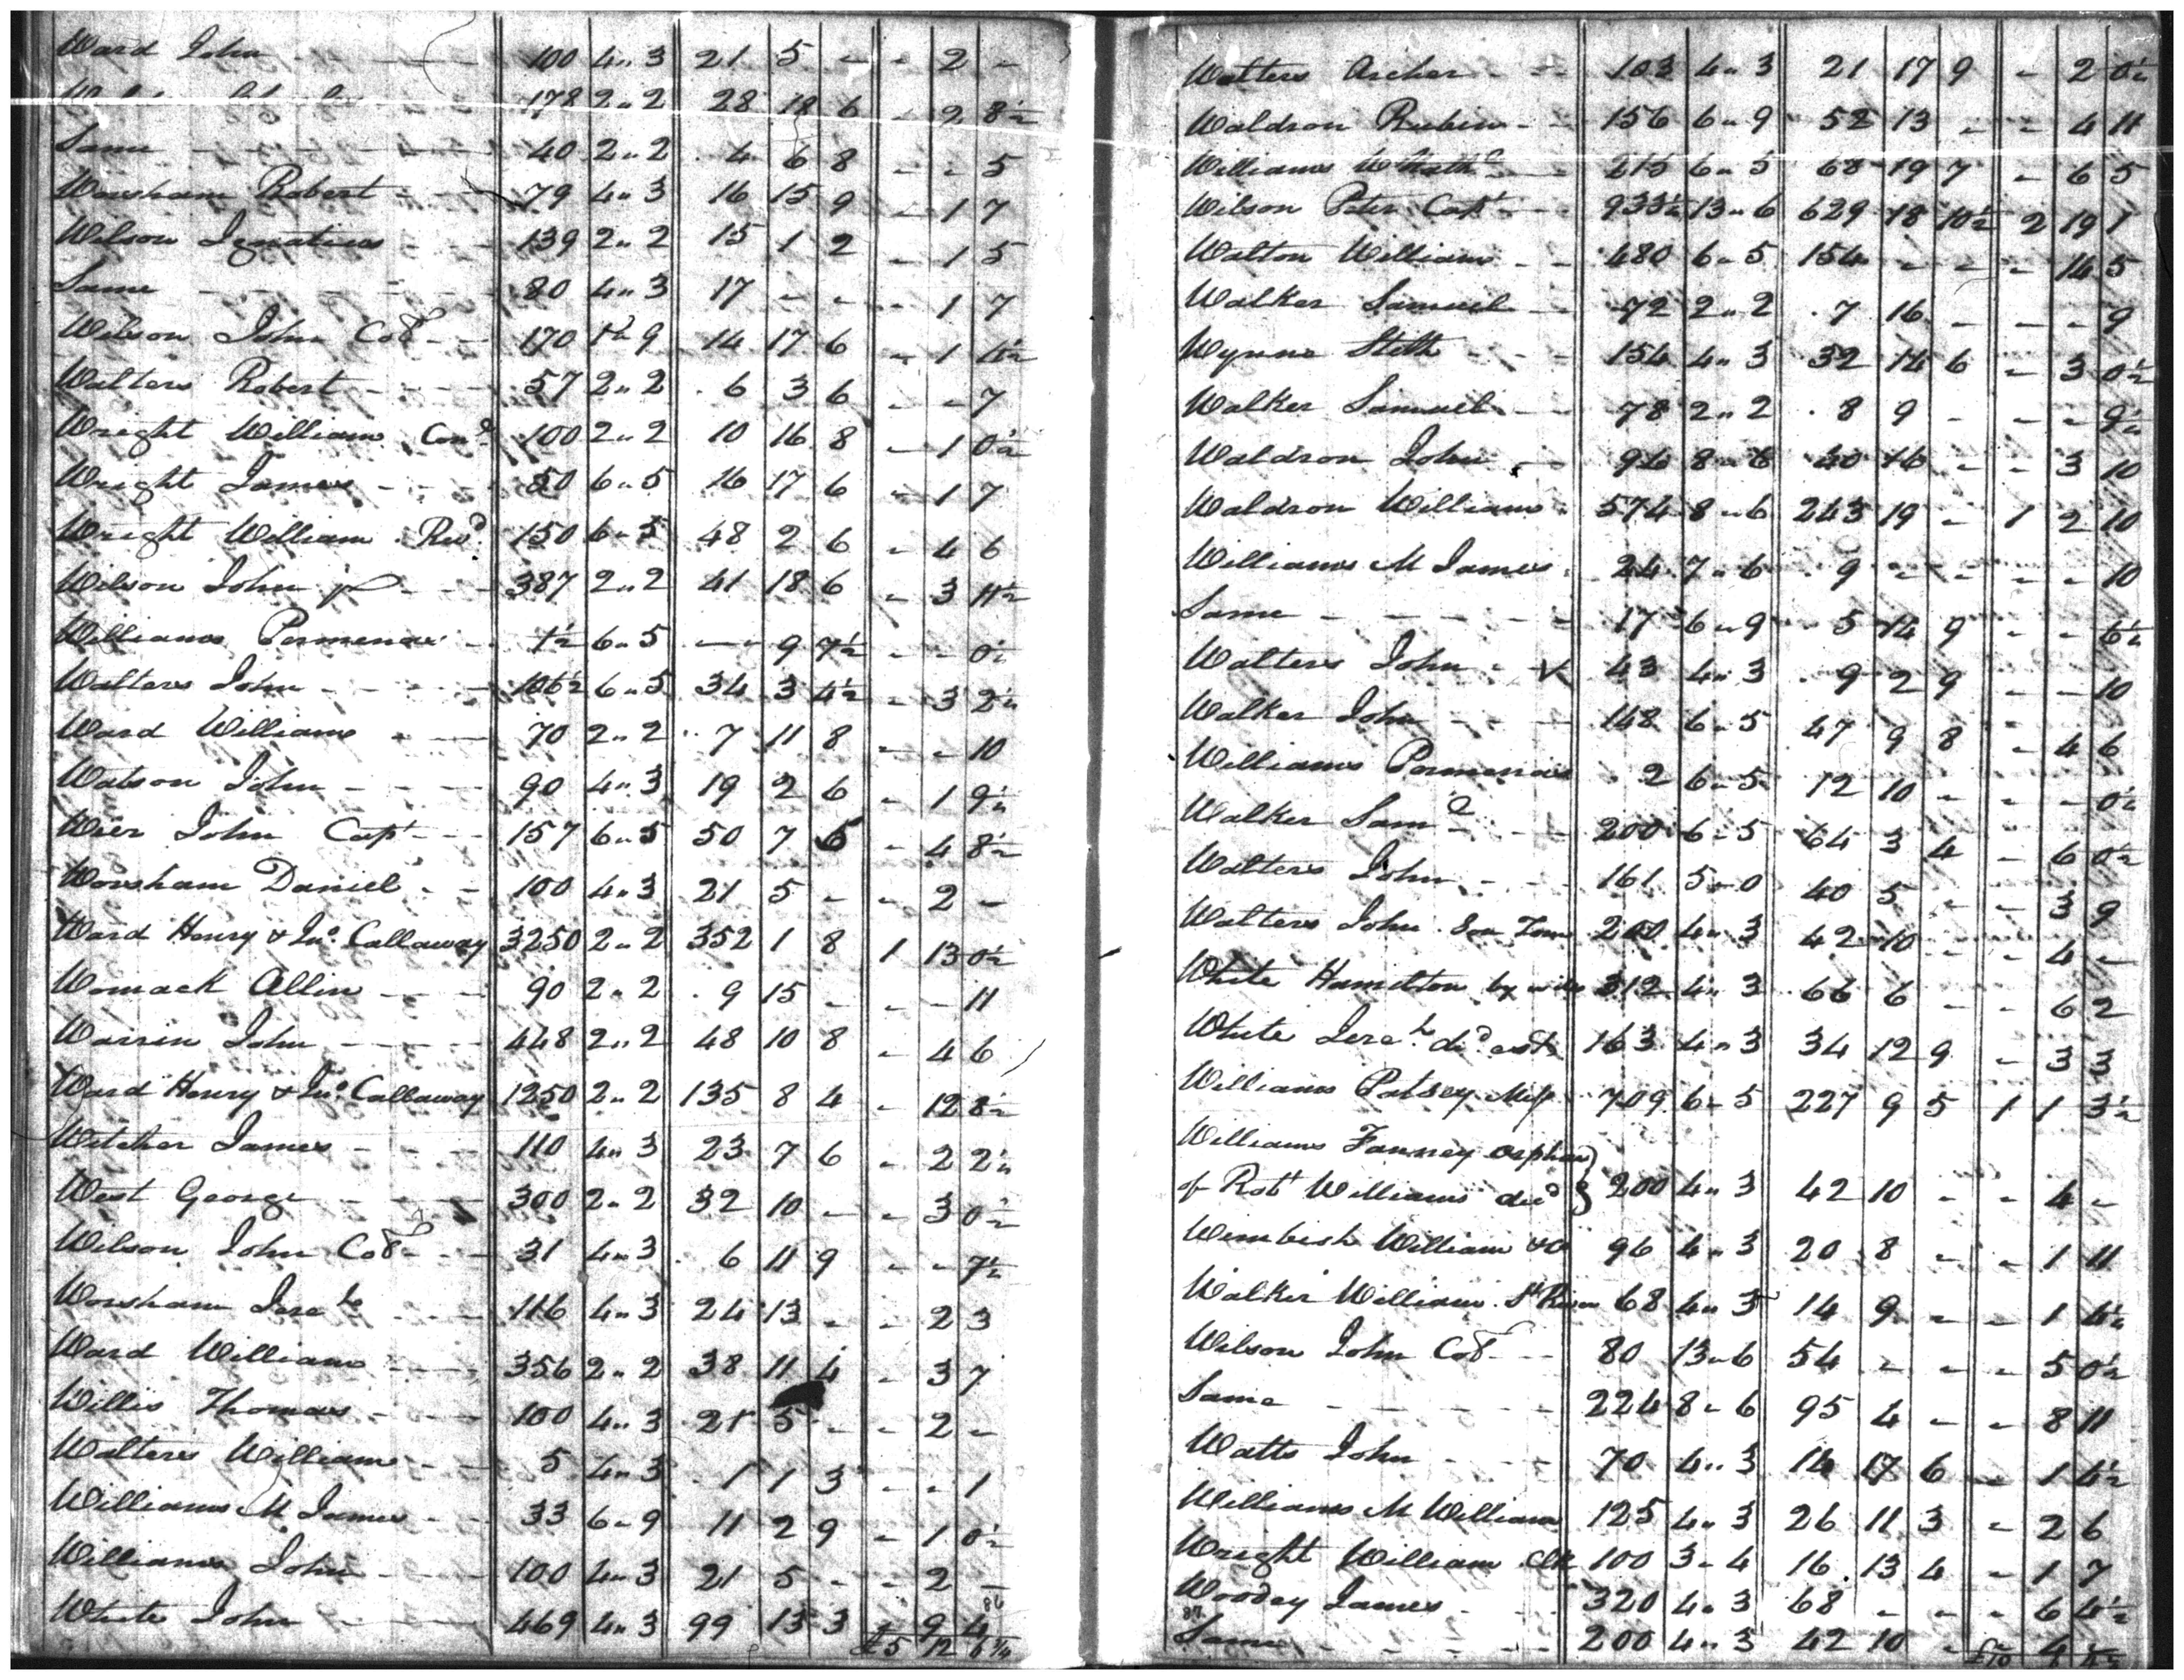 Ward John 100 4 " 3 21 5 - - 2 -
178 2 " 2 28 18 6 - 2 8½
Same 40 2 " 2 4 6 8 - - 5
Worsham Robert 79 4 " 3 16 15 9 - 1 7
Wilson Ignatius 139 2 " 2 15 1 2 - 1 5
Same 80 4 " 3 17 - - - 1 7
Wilson John Col 170 1 " 9 14 17 6 - 1 4½
Walters Robert 57 2 " 2 6 3 6 - - 7
Wright William Cond 100 2 " 2 10 16 8 - 1 0½
Wright James 50 6 " 5 16 17 6 - 1 7
Wright William Revd 150 6 " 5 48 2 6 - 4 6
Wilson John jr 387 2 " 2 41 18 6 - 3 11½
Williams Permenas 1½ 6 " 5 - 9 7½ - - 0½
Walters John 106½ 6 " 5 34 3 4½ - 3 2½
Ward William 70 2 " 2 7 11 8 - - 10
Watson John 90 4 " 3 19 2 6 - 1 9½
Wier John Capt 157 6 " 5 50 7 6 - 4 8½
Worsham Daniel 100 4 " 3 21 5 - - 2 -
Ward Henry & Jno. Callaway 3250 2 " 2 352 1 8 1 13 0½
Womack Allin 90 2 " 2 9 15 - - - 11
Warrin John 448 2 " 2 48 10 8 - 4 6
Ward Henry & Jno. Callaway 1250 2 " 2 135 8 4 - 12 8½
Witcher James 110 4 " 3 23 7 6 - 2 2½
West George 300 2 " 2 32 10 - - 3 0½
Wilson John Col 31 4 " 3 6 11 9 - - 7½
Worsham Jereh 116 4 " 3 24 13 - - 2 3
Ward William 356 2 " 2 38 11 4 - 3 7
Willis Thomas 100 4 " 3 21 5 - - 2 -
Walters William 5 4 " 3 1 1 3 - - 1
Williams M James 33 6 " 9 11 2 9 - 1 0½
Williams John 100 4 " 3 21 5 - - 2 -
86
White John 469 4 " 3 99 13 3 - 9 4
£5 12 6¼
Walters Archer 103 4 " 3 21 17 9 - 2 0½
Waldron Rubin 156 6 " 9 52 13 - - 4 11
Williams 215 6 " 5 68 19 7 - 6 5
Wilson Peter Capt 933½ 13 " 6 629 18 10½ 2 19 1
Walton William 480 6 " 5 154 - - - 14 5
Walker Samuel 72 2 " 2 7 16 - - - 9
Wynne Stith 154 4 " 3 32 14 6 - 3 0½
Walker Samuel 78 2 " 2 8 9 - - - 9½
Waldron John 96 8 " 6 40 16 - - 3 10
Waldron William 574 8 " 6 243 19 - 1 2 10
Williams M James 24 7 " 6 9 - - - - 10
Same 17 6 " 9 5 14 9 - - 6½
Walters John 43 4 " 3 9 2 9 - - 10
Walker John 148 6 " 5 47 9 8 - 4 6
Williams Permenas 2 6 " 5 12 10 - - - 0½
Walker Saml 200 6 " 5 64 3 4 - 6 0½
Walters John 161 5 " 0 40 5 - - 3 9
Walters John Son Tom 200 4 " 3 42 10 - - 4 -
White Hamilton by 312 4 " 3 66 6 - - 6 2
White Jereh decd est 163 4 " 3 34 12 9 - 3 3
Williams Patsey Miss 709 6 " 5 227 9 5 1 1 3½
Williams Fanney orphan
of Robt Williams decd } 200 4 " 3 42 10 - - 4 -
Wimbish William &Co 96 4 " 3 20 8 - - 1 11
Walker William St River 68 4 " 3 14 9 - - 1 4½
Wilson John Col 80 13 " 6 54 - - - 5 0½
Same 224 8 " 6 95 4 - - 8 11
Watts John 70 4 " 3 14 17 6 - 1 4½
Williams M William 125 4 " 3 26 11 3 - 2 6
Wright William Clk 100 3 " 4 16 13 4 - 1 7
Woodey James 320 4 " 3 68 - - - 6 4½
87
Same 200 4 " 3 42 10 - 4